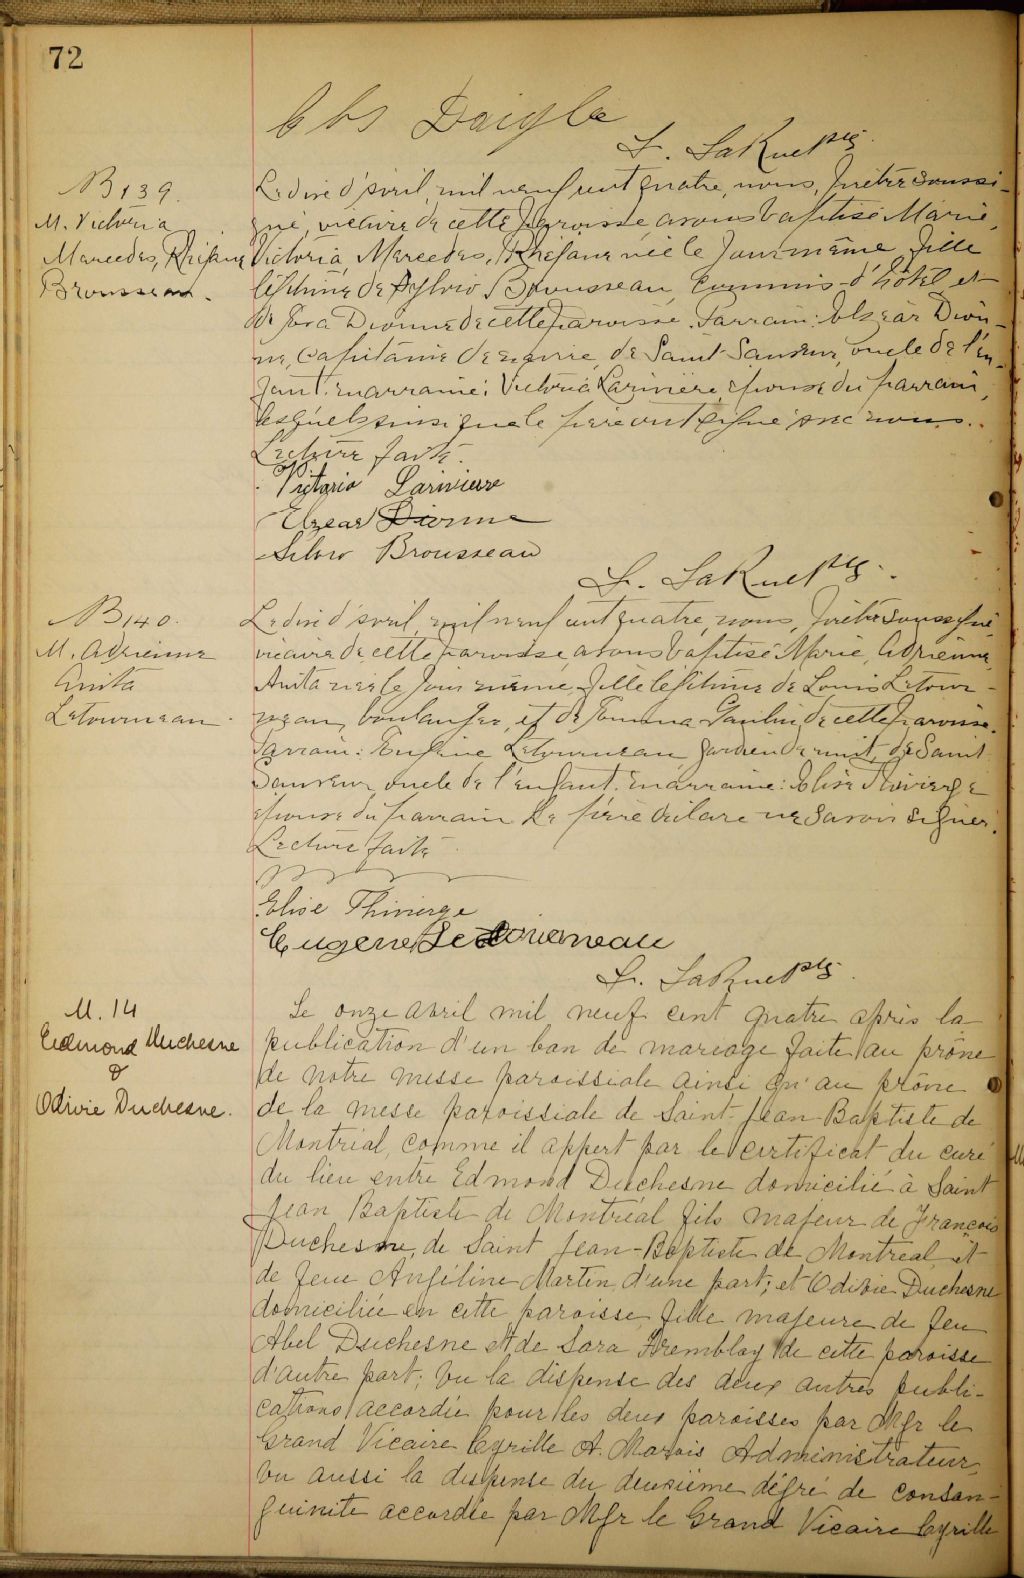 72
Chs Daigle
L. LaRue ptre
B 139.
M. Victoria
Mercedes,
Brousseau.
Le dix d'avril, mil neuf cent quatre, nous, prêtre soussi-
gné, vicaire de cette paroisse avons baptisé Marie,
Victoria, Mercedes, née le jour même, fille
légitime de Sylvio Brousseau, commis-d'hôtel et
de Dionne de cette paroisse. Parrain: Elzéar Dion-
ne, Capitaine de navire, de Saint Sauveur, oncle de l'en-
fant. marraine: Victoria Larivière, épouse du parrain,
lesquels ainsi que le père ont signé avec nous.
Lecture faite.
Victoria Larivierre
Elzear Dionne
Silvio Brousseau
L. LaRue ptre
B 140.
M. Adrienne
Anita
Letourneau.
Le dix d'avril, mil neuf cent quatre, nous, prêtre soussigné,
vicaire de cette paroisse, avons baptisé Marie, Adrienne,
Anita née le jour même, fille légitime de Louis Letour-
neau, boulanger, et de Emma Gaulin, de cette paroisse.
Parrain: Eugène Letourneau, gardien de nuit, de Saint
Sauveur, oncle de l'enfant. marraine: Elise Thivierge
épouse du parrain. Le père déclare ne savoir signer.
Lecture faite.
Elise Thivierge
Eugene Letourneau
L. LaRue ptre
M. 14
Edmond Duchesne
&
Odivie Duchesne.
Le onze avril mil neuf cent quatre après la
publication d'un ban de mariage faite au prône
de notre messe paroissiale ainsi qu'au prône
de la messe paroissiale de Saint-Jean-Baptiste de
Montréal, comme il appert par le certificat du curé
du lieu entre Edmond Duchesne domicilié à Saint
Jean Baptiste de Montréal fils majeur de François
Duchesne, de Saint Jean-Baptiste de Montreal, et
de feue Angéline Martin, d'une part; et Odivie Duchesne
domiciliée en cette paroisse, fille majeure de feu
Abel Duchesne et de Sara Tremblay de cette paroisse
d'autre part; Vu la dispense des deux autres publi-
cations accordée pour les deux paroisses par Mgr le
Grand Vicaire Cyrille A. Marois Administrateur,
vu aussi la dispense du deuxième dégré de consan-
guinité accordée par Mgr le Grand Vicaire Cyrille